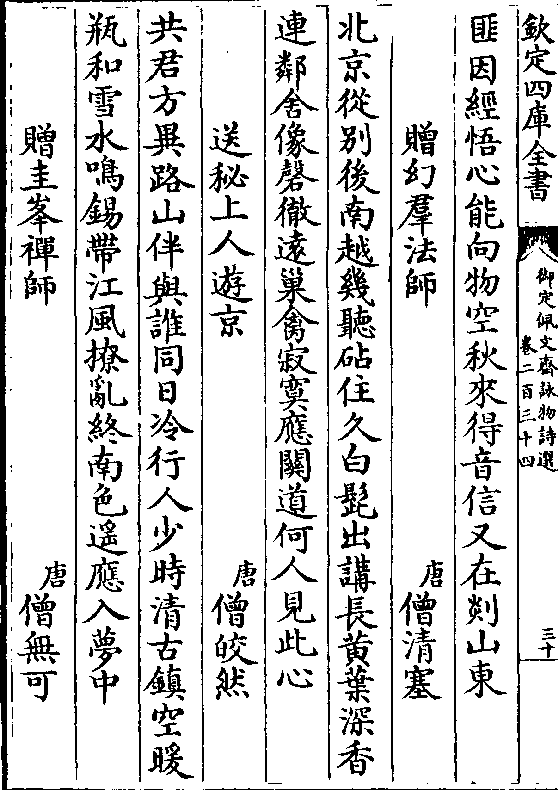 欽定四庫全書
御定佩文齋詠物詩選
卷二百三十四
三十
匪因經悟心能向物空秋來得音信又在剡山東
贈幻羣法師 唐 僧清塞
北京從别後南越幾聽砧住久白髭出講長黄葉深香
連鄰舍像磬徹遠巢禽寂寞應關道何人見此心
送秘上人遊京 唐 僧皎然
共君方異路山伴與誰同日冷行人少時清古鎮空暖
瓶和雪水鳴錫帶江風撩亂終南色遥應入夢中
贈圭峯禪師 唐 僧無可